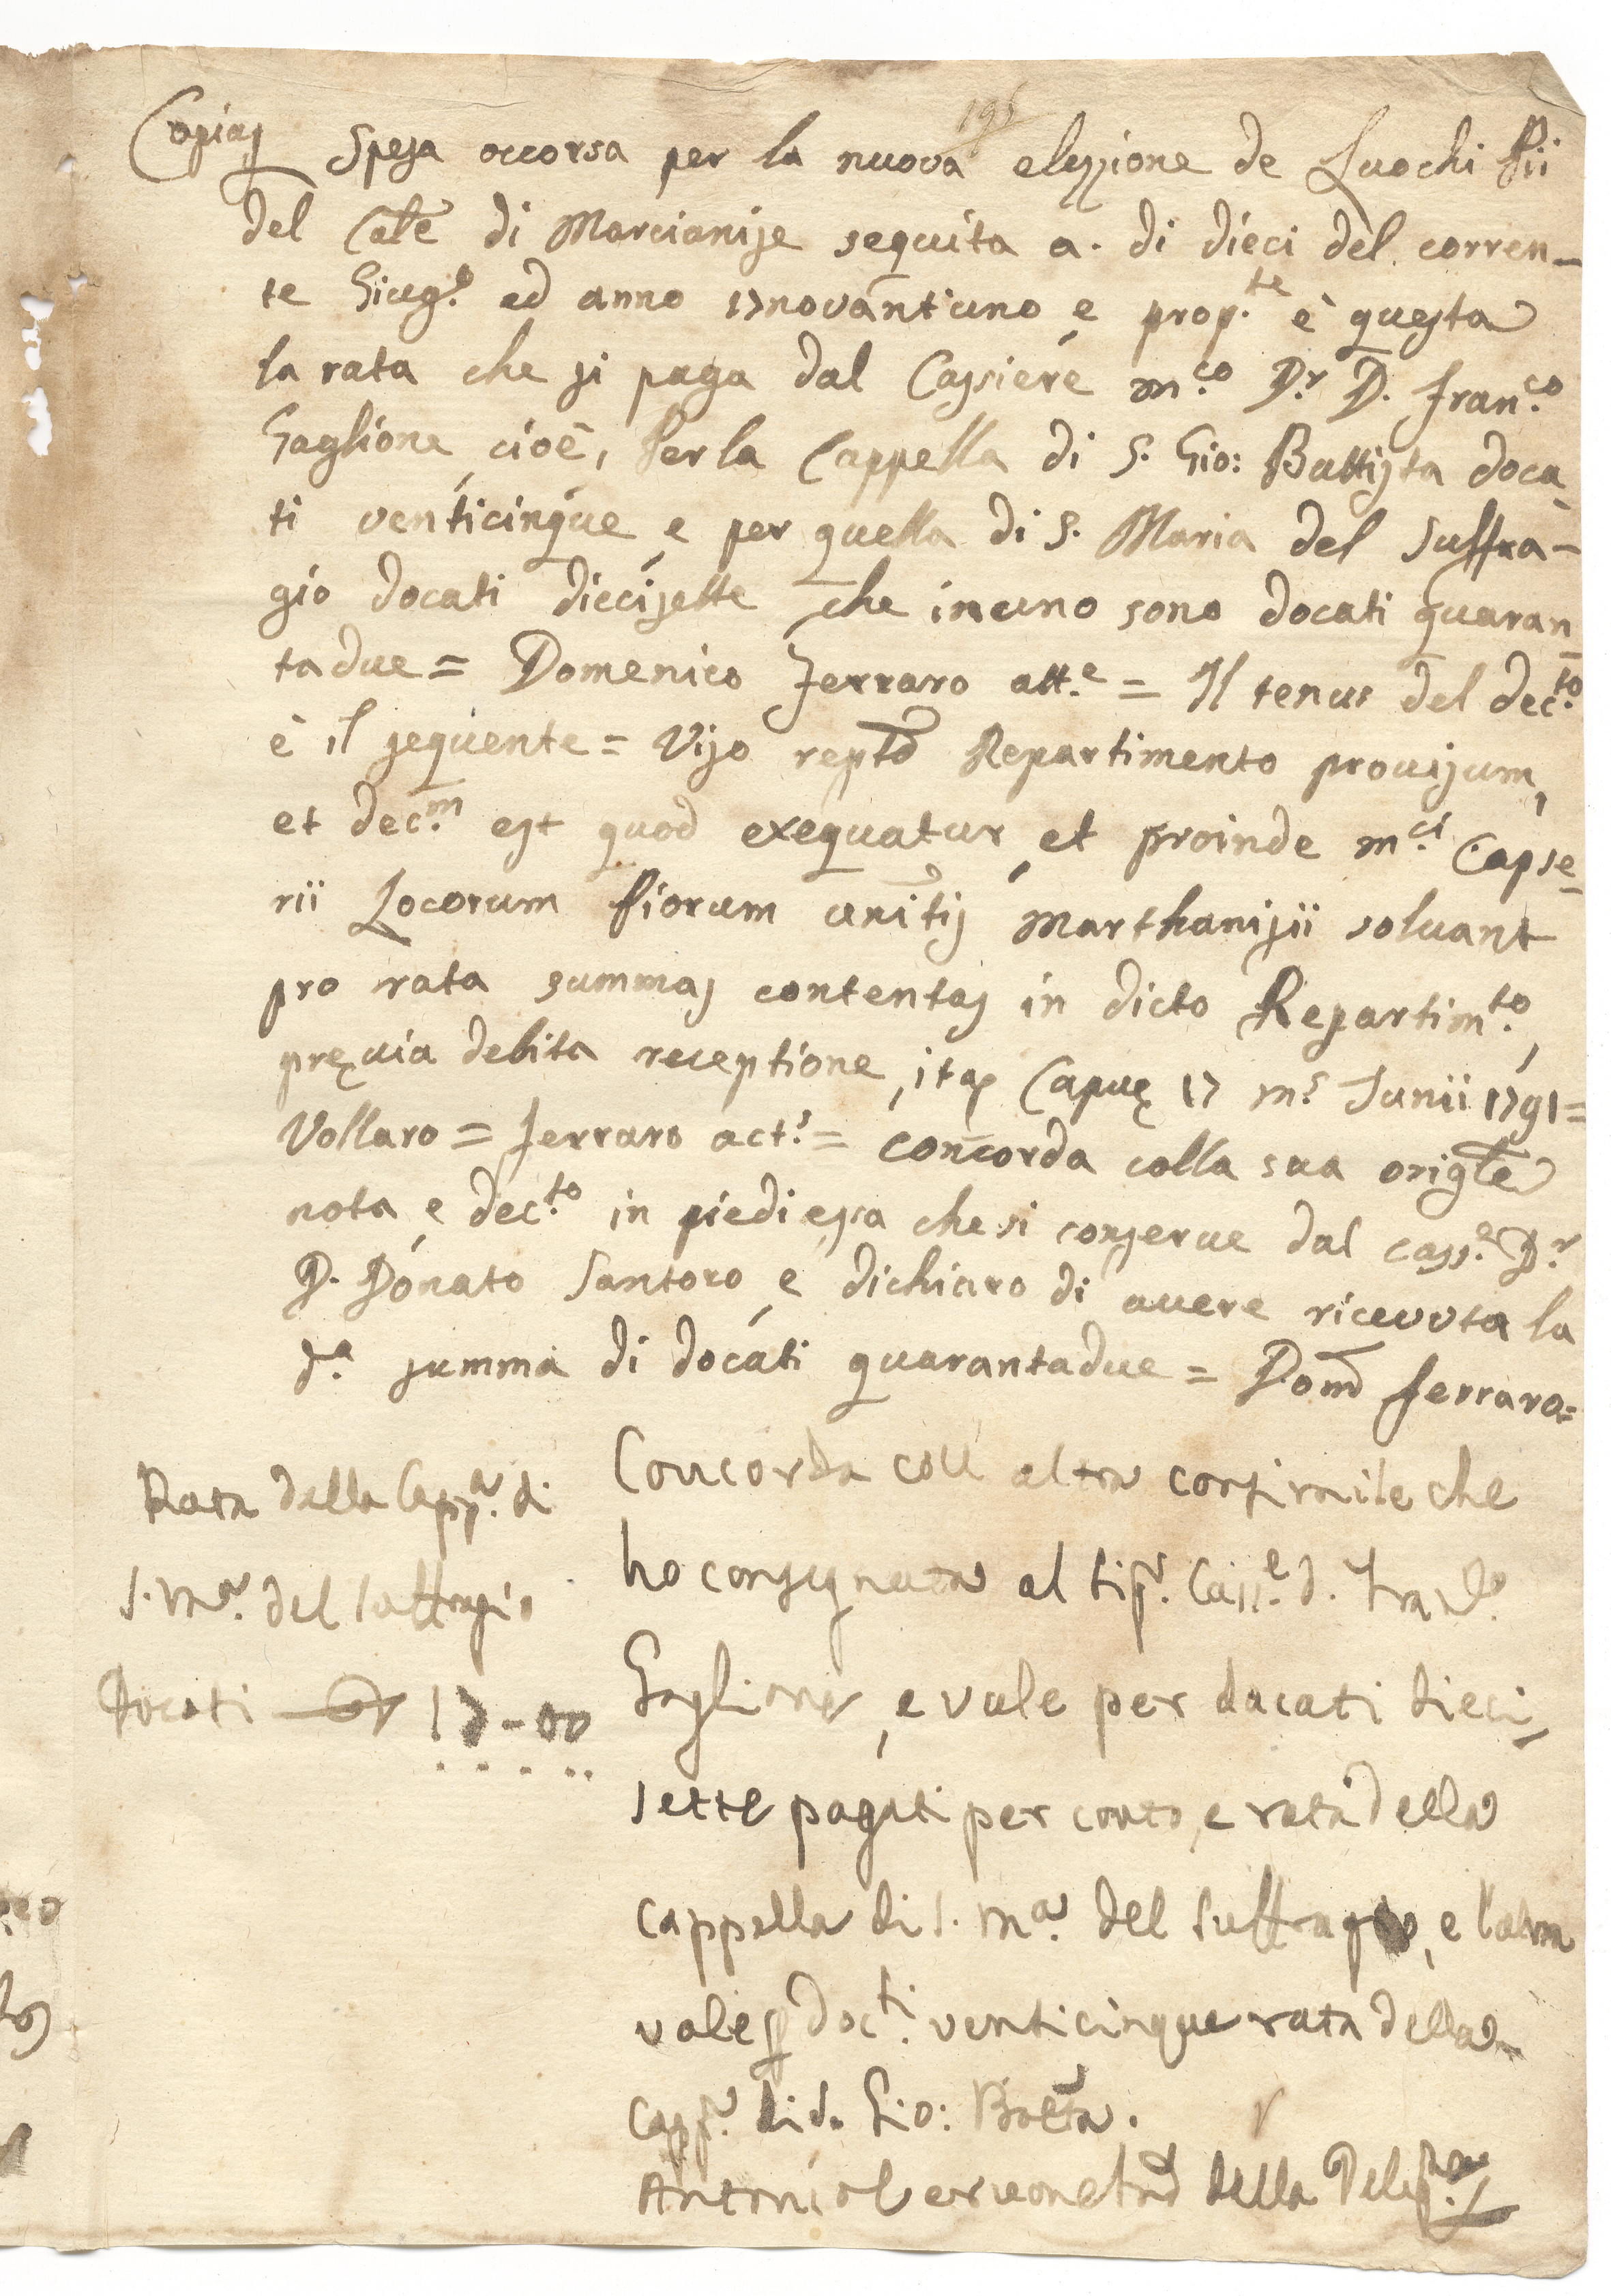 195
Copia Spesa occorsa per la nuova elezzione de Luochi Pii
del Cale di Marcianise seguita a. di dieci del corren-
te Giug.o ed anno 17novant'uno, e prop.te è questa
la rata che si paga dal Cassiere m.co D.r D. Fran.co
Gaglione, cioè, Per la Cappella di S. Gio: Battista doca-
ti venticinque, e per quella di S. Maria del Suffra-
gio docati diecisette che in uno sono docati quaran-
tadue = Domenico Ferraro att.e = Il tenur del dec.to
è il sequente = Viso reptõ Repartimento provisum,
et dec.m est quod exequatur, et proinde m.ci Capse-
rii Locorum Piorum unitis Marthanisii solvant
pro rata summas contentas in dicto Repartim.to,
pręvia debita receptione, ita Capuę 17 m.s Junii 1791=
Vollaro = Ferraro act.s = concorda colla sua origle
nota, e dec.to in piedi essa che si conserve dal cass.e D.r
D. Donato Santoro, e dichiaro di avere ricevuta la
d.a summa di docati quarantadue = Dom.o Ferraro=
Concorda coll altra consimile che
ho consignata al Sig.r Cass.e d. Fran.co
Gaglione, e vale per ducati dieci,
sette pagati per conto, e rata della
Cappella di S. M.a del Suffragio, e l'altra
vale p doc.ti venticinque rata della
Capp.a di S. Gio: Batta.
Antonio della Deleg.ne
Rata della Capp.a di
S. M.a del Suffragio
Docati 17-00